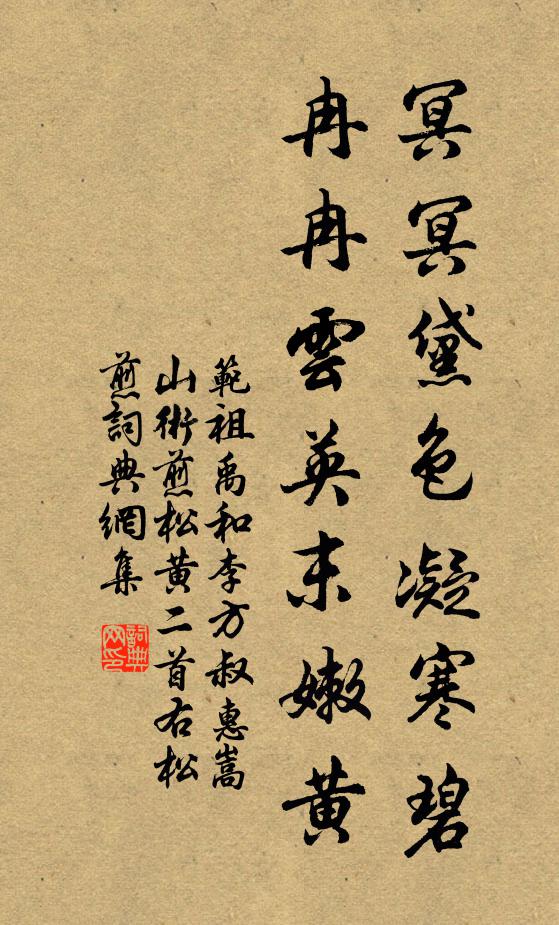 冥冥黛色凝寒碧
冉冉雲英末嫩黃
範祖禹和李方叔惠嵩
山術煎松黃二首右松
煎詞典網集
詞典網印